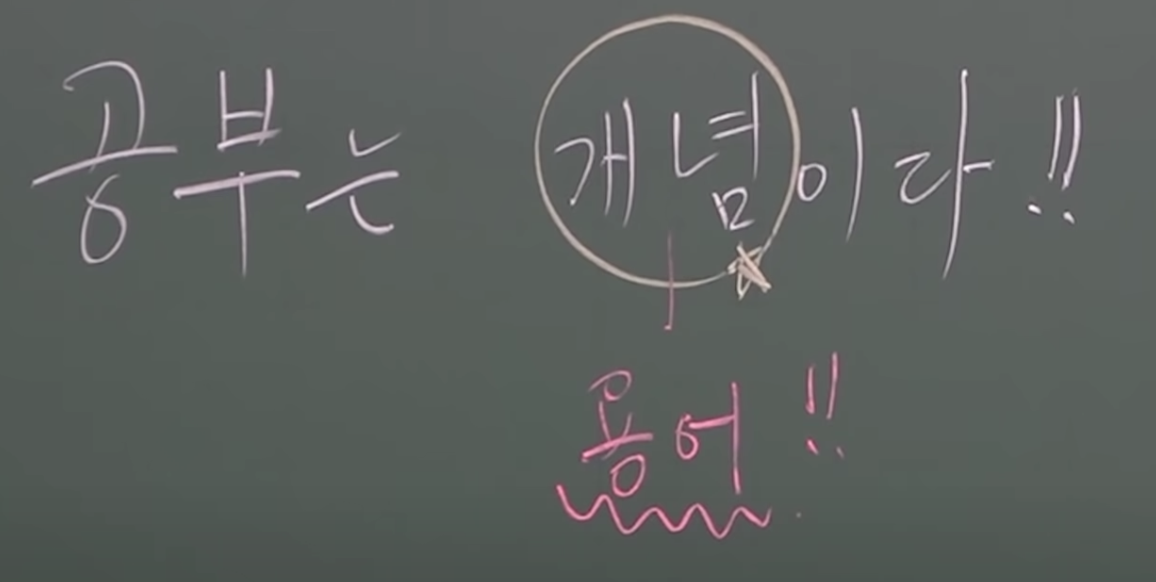 공부는 개념이다!!
용어!!